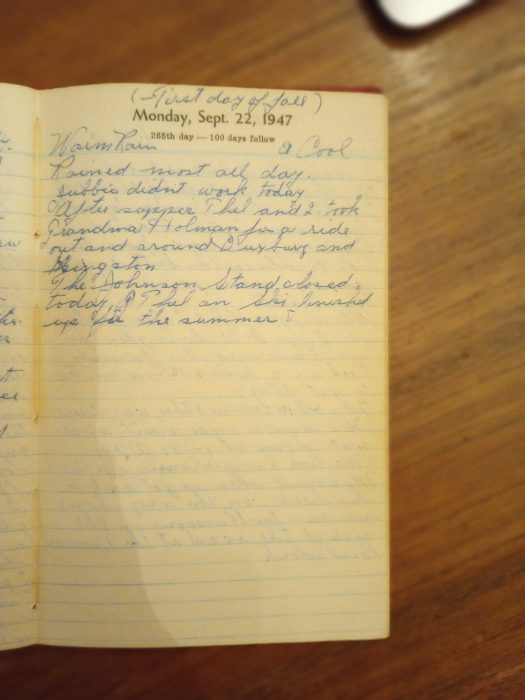 (First day of fall)
Monday, Sept. 22, 1947
265th day — 100 days follow
Warm Rain & Cool
Rained most all day.
Bubbie didnt work today
After supper Thel and I took
Grandma Holman for a ride
out and around Duxbury and
Kingston
The Johnson Stand closed
today & Thel an finished
up for the summer